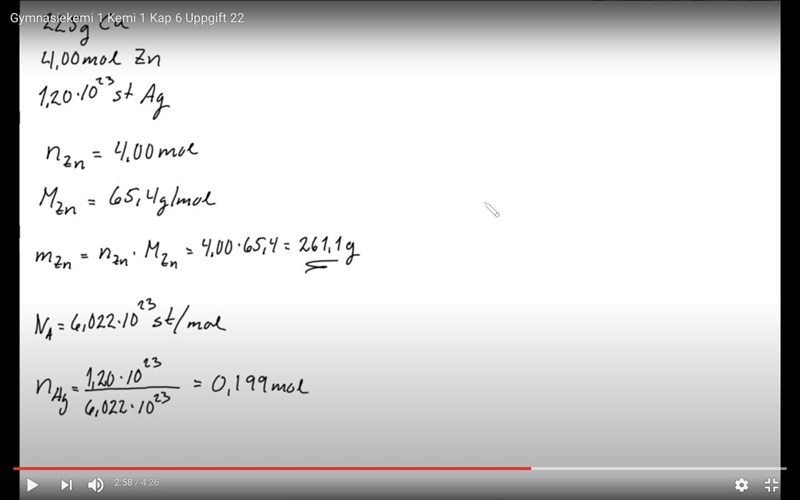 Gymnasiekemi 1 Kemi 1 Kap 6 Uppgift 22
225g Cu
4,00mol Zn
1,20·10²³ st Ag
n_Zn = 4,00mol
M_Zn = 65,4g/mol
m_Zn = n_Zn · M_Zn = 4,00·65,4 = 261,1g
N_A = 6,022·10²³ st/mol
n_Ag = 1,20·10²³ / 6,022·10²³ = 0,199mol
2:58 / 4:26